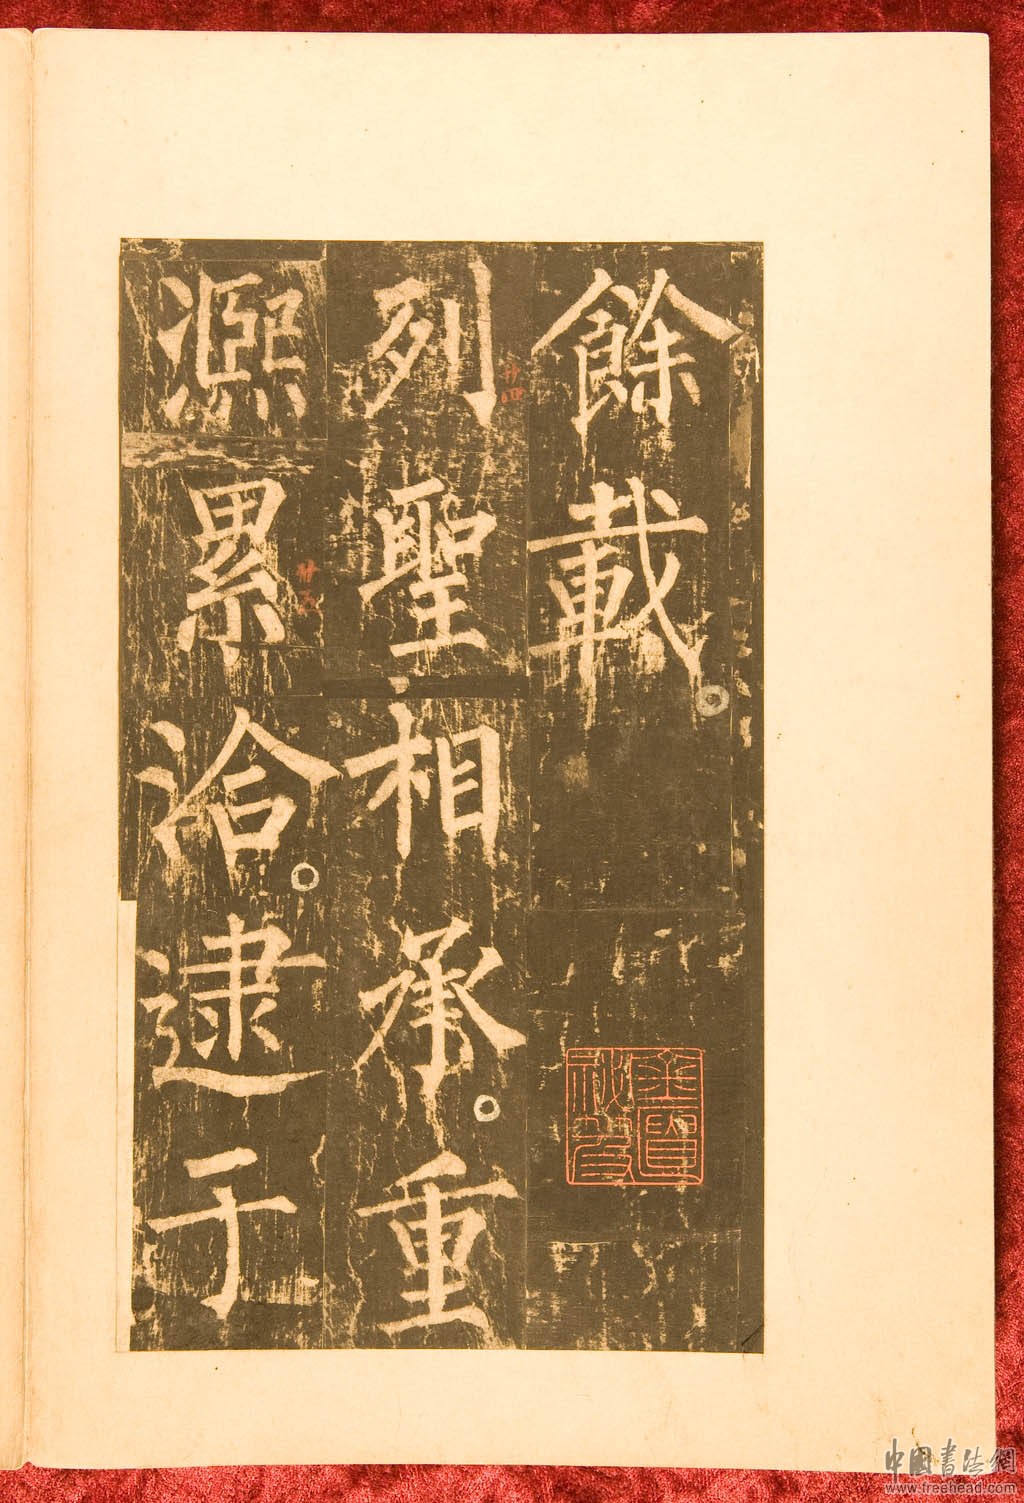 餘載。
列聖相承。重
熈累洽。逮于
中國書法網
www.freehead.com